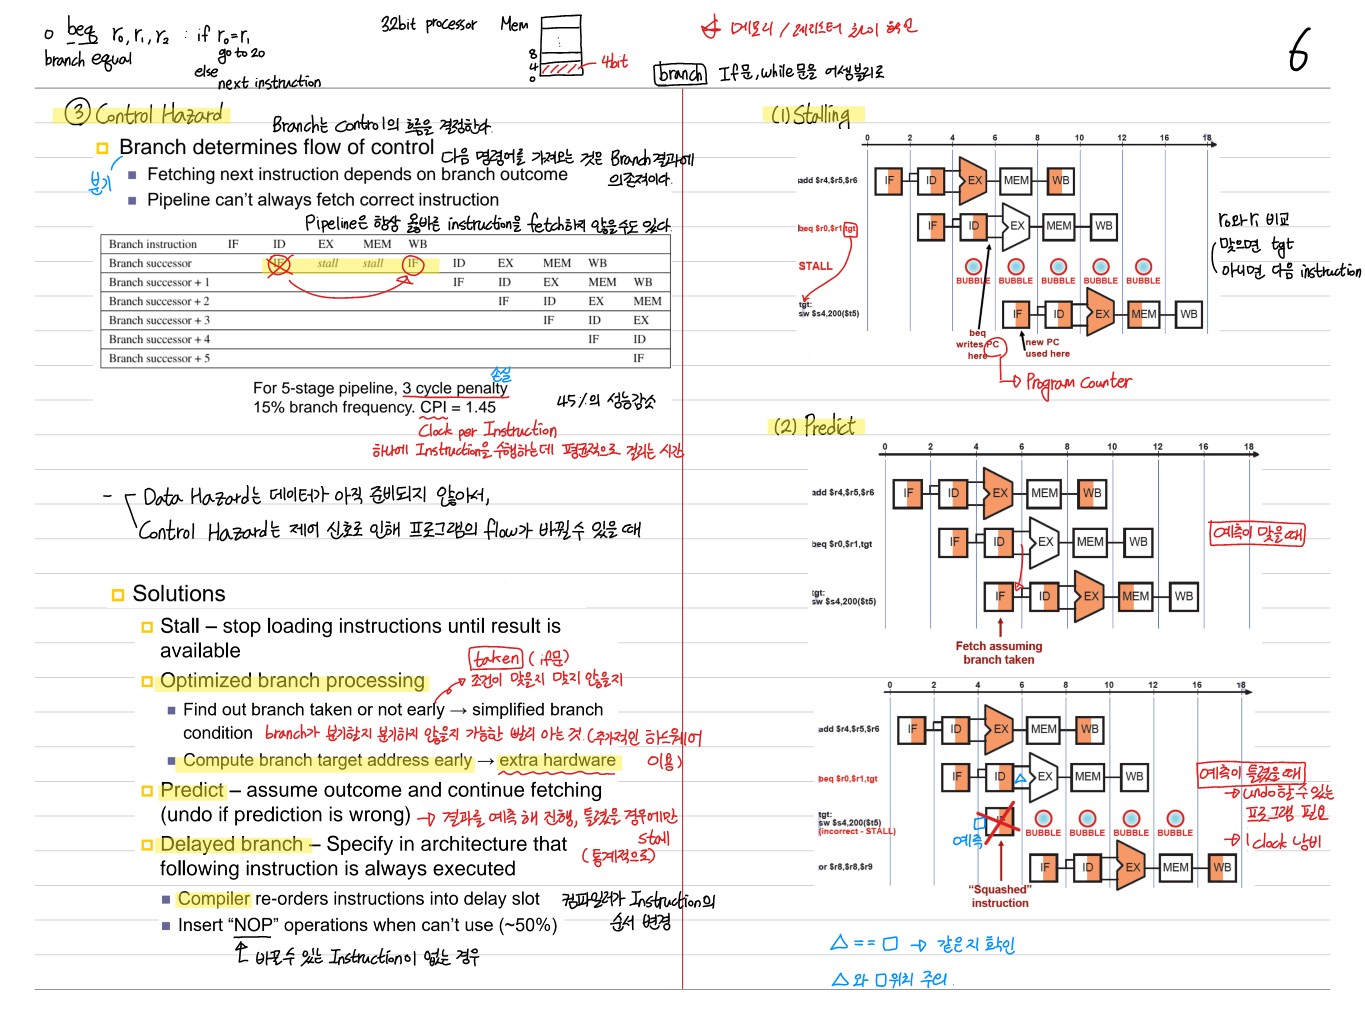 o beq r0, r1, r2 : if r0=r1
branch equal
go to 20
else
next instruction
32bit processor
Mem
8
4
0
4bit
메모리 / 레지스터 차이 확인
branch If문, while문을 어셈블리로
6
③ Control Hazard
Branch는 control의 흐름을 결정한다.
Branch determines flow of control
다음 명령어를 가져오는 것은 Branch 결과에
의존적이다.
분기
Fetching next instruction depends on branch outcome
Pipeline can't always fetch correct instruction
Pipeline은 항상 옳바른 instruction을 fetch하지 않을수도 있다.
Branch instruction IF ID EX MEM WB
Branch successor IF stall stall IF ID EX MEM WB
Branch successor + 1 IF ID EX MEM WB
Branch successor + 2 IF ID EX MEM
Branch successor + 3 IF ID EX
Branch successor + 4 IF ID
Branch successor + 5 IF
손실
For 5-stage pipeline, 3 cycle penalty
15% branch frequency. CPI = 1.45
45%의 성능감소
Clock per Instruction
하나에 Instruction을 수행하는데 평균적으로 걸리는 시간
- Data Hazard는 데이터가 아직 준비되지 않아서,
Control Hazard는 제어 신호로 인해 프로그램의 flow가 바뀔 수 있을 때
Solutions
Stall – stop loading instructions until result is
available
taken (if문)
조건이 맞을지 맞지 않을지
Optimized branch processing
Find out branch taken or not early → simplified branch
condition
branch가 분기할지 분기하지 않을지 가능한 빨리 아는 것. (추가적인 하드웨어
이용)
Compute branch target address early → extra hardware
Predict – assume outcome and continue fetching
(undo if prediction is wrong)
→ 결과를 예측해 진행, 틀렸을 경우에만
stall
(통계적으로)
Delayed branch – Specify in architecture that
following instruction is always executed
Compiler re-orders instructions into delay slot
컴파일러가 Instruction의
순서 변경
Insert “NOP” operations when can't use (~50%)
바꿀수 있는 Instruction이 없는 경우
(1) Stalling
0 2 4 6 8 10 12 16 18
add $r4,$r5,$r6 IF ID EX MEM WB
beq $r0,$r1,tgt IF ID EX MEM WB
STALL
BUBBLE BUBBLE BUBBLE BUBBLE BUBBLE
tgt:
sw $s4,200($t5) IF ID EX MEM WB
beq
writes PC
here
new PC
used here
→ Program Counter
r0와 r1 비교
맞으면 tgt
아니면 다음 instruction
(2) Predict
0 2 4 6 8 10 12 16 18
add $r4,$r5,$r6 IF ID EX MEM WB
beq $r0,$r1,tgt IF ID EX MEM WB
tgt:
sw $s4,200($t5) IF ID EX MEM WB
예측이 맞을 때
Fetch assuming
branch taken
0 2 4 6 8 10 12 16 18
add $r4,$r5,$r6 IF ID EX MEM WB
beq $r0,$r1,tgt IF ID EX MEM WB
tgt:
sw $s4,200($t5) IF
(incorrect - STALL)
BUBBLE BUBBLE BUBBLE BUBBLE
예측
or $r8,$r8,$r9 IF ID EX MEM WB
“Squashed”
instruction
예측이 틀렸을 때
→ undo할 수 있는
프로그램 필요
→ 1 clock 낭비
△ == □ → 같은지 확인
△와 □위치 주의.